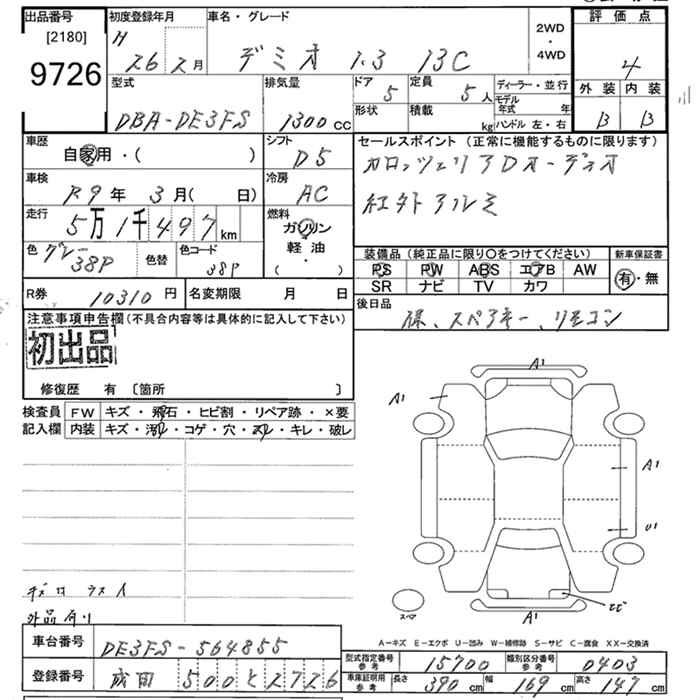 出品番号
[2180]
9726
初度登録年月
H
26 2月
車名・グレード
デミオ 1.3 13C
2WD
・
4WD
評価点
4
外装 内装
B B
型式
DBA-DE3FS
排気量
1300cc
ドア
5
定員
5人
形状
積載
kg
ディーラー・並行
モデル年式 年
ハンドル 左・右
車歴
自家用・( )
シフト
D5
セールスポイント (正常に機能するものに限ります)
カロッツェリアDオーディオ
社外アルミ
車検
R9年 3月( 日)
冷房
AC
走行
5万1千497km
燃料
ガソリン
軽油
( )
色 グレー
38P
色替
色コード
38P
装備品 (純正品に限り○をつけてください)
PS PW ABS エアB AW
SR ナビ TV カワ
新車保証書
有・無
R券 10310円
名変期限 月 日
後日品
保、スペアキー、リモコン
注意事項申告欄(不具合内容等は具体的に記入して下さい)
初出品
修復歴 有 〔箇所 〕
検査員
記入欄
FW キズ・飛石・ヒビ割・リペア跡・×要
内装 キズ・汚れ・コゲ・穴・スレ・キレ・破レ
A1
A1
A1
U1
ヒビ
A1
スペア
外品有り
A-キズ E-エクボ U-凹み W-補修跡 S-サビ C-腐食 XX-交換済
車台番号 DE3FS-564855
登録番号 成田 500 と 2726
型式指定番号 参考 15700
類別区分番号 参考 0403
車庫証明用 参考 長さ 390cm 幅 169cm 高さ 147cm